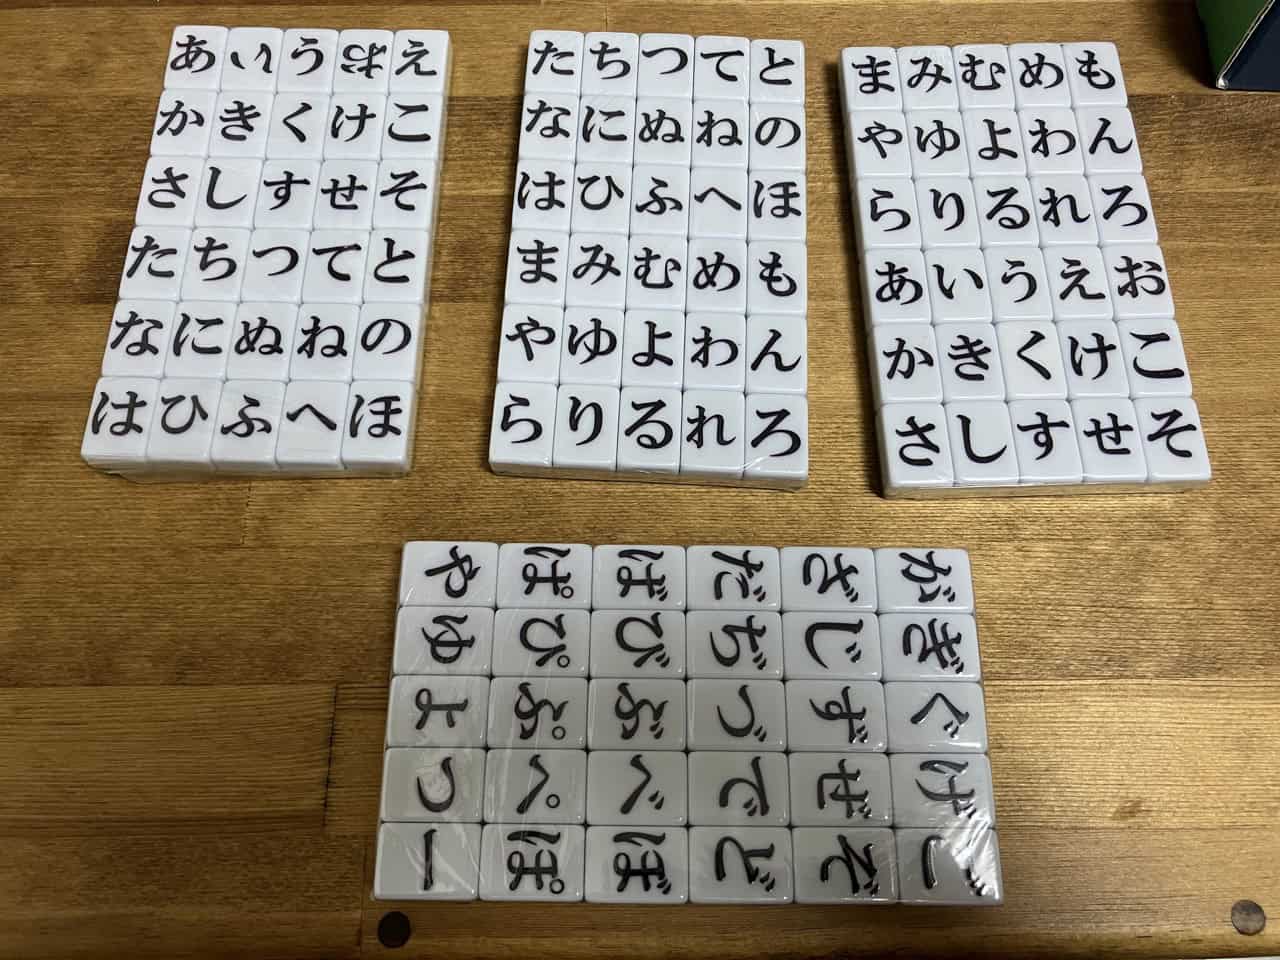 あいうおえ
かきくけこ
さしすせそ
たちつてと
なにぬねの
はひふへほ
たちつてと
なにぬねの
はひふへほ
まみむめも
やゆよわん
らりるれろ
まみむめも
やゆよわん
らりるれろ
あいうえお
かきくけこ
さしすせそ
がぎぐげご
ざじずぜぞ
だぢづでど
ばびぶべぼ
ぱぴぷぺぽ
やゆよつー